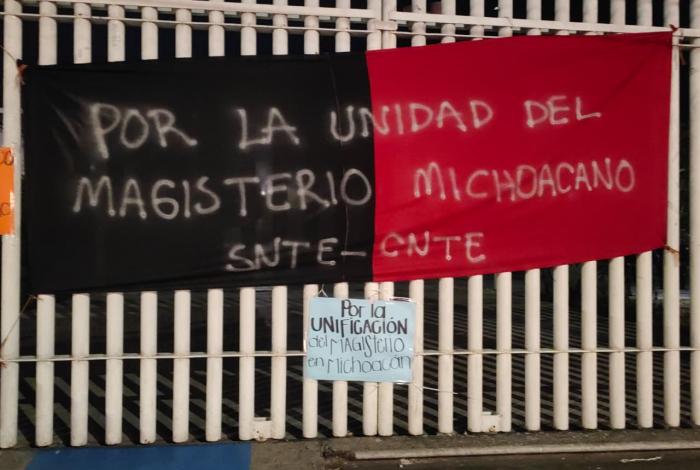 POR LA UNIDAD DEL
MAGISTERIO MICHOACANO
SNTE-CNTE
Por la
UNIFICACIÓN
del MAGISTERIO
en Michoacán